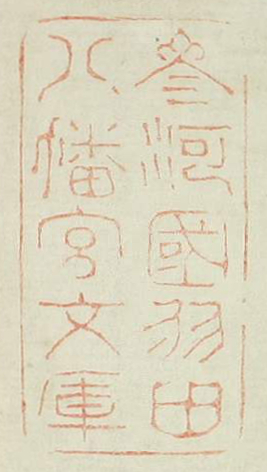 參河國羽田
八幡宮文庫